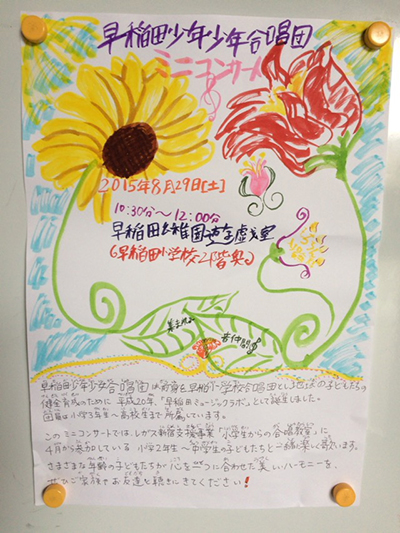 早稲田少年少年合唱団
ミニコンサート
2015年8月29日[土]
10:30分〜12:00分
早稲田幼稚園遊戯室
早稲田小学校2階
早稲田少年少女合唱団は前身を早稲田小学校合唱団とし地域の子どもたちの
健全育成のために 平成20年、「早稲田ミュージックラボ」として誕生しました。
団員は小学3年生〜高校生まで所属しています。
このミニコンサートでは、レガス新宿支援事業「小学生からの合唱教室」に
4月から参加している 小学2年生〜中学生の子どもたちと一緒に楽しく歌います。
さまざまな年齢の子どもたちが 心を一つに合わせた美しいハーモニーを、
ぜひご家族やお友達と聴きにきてください!